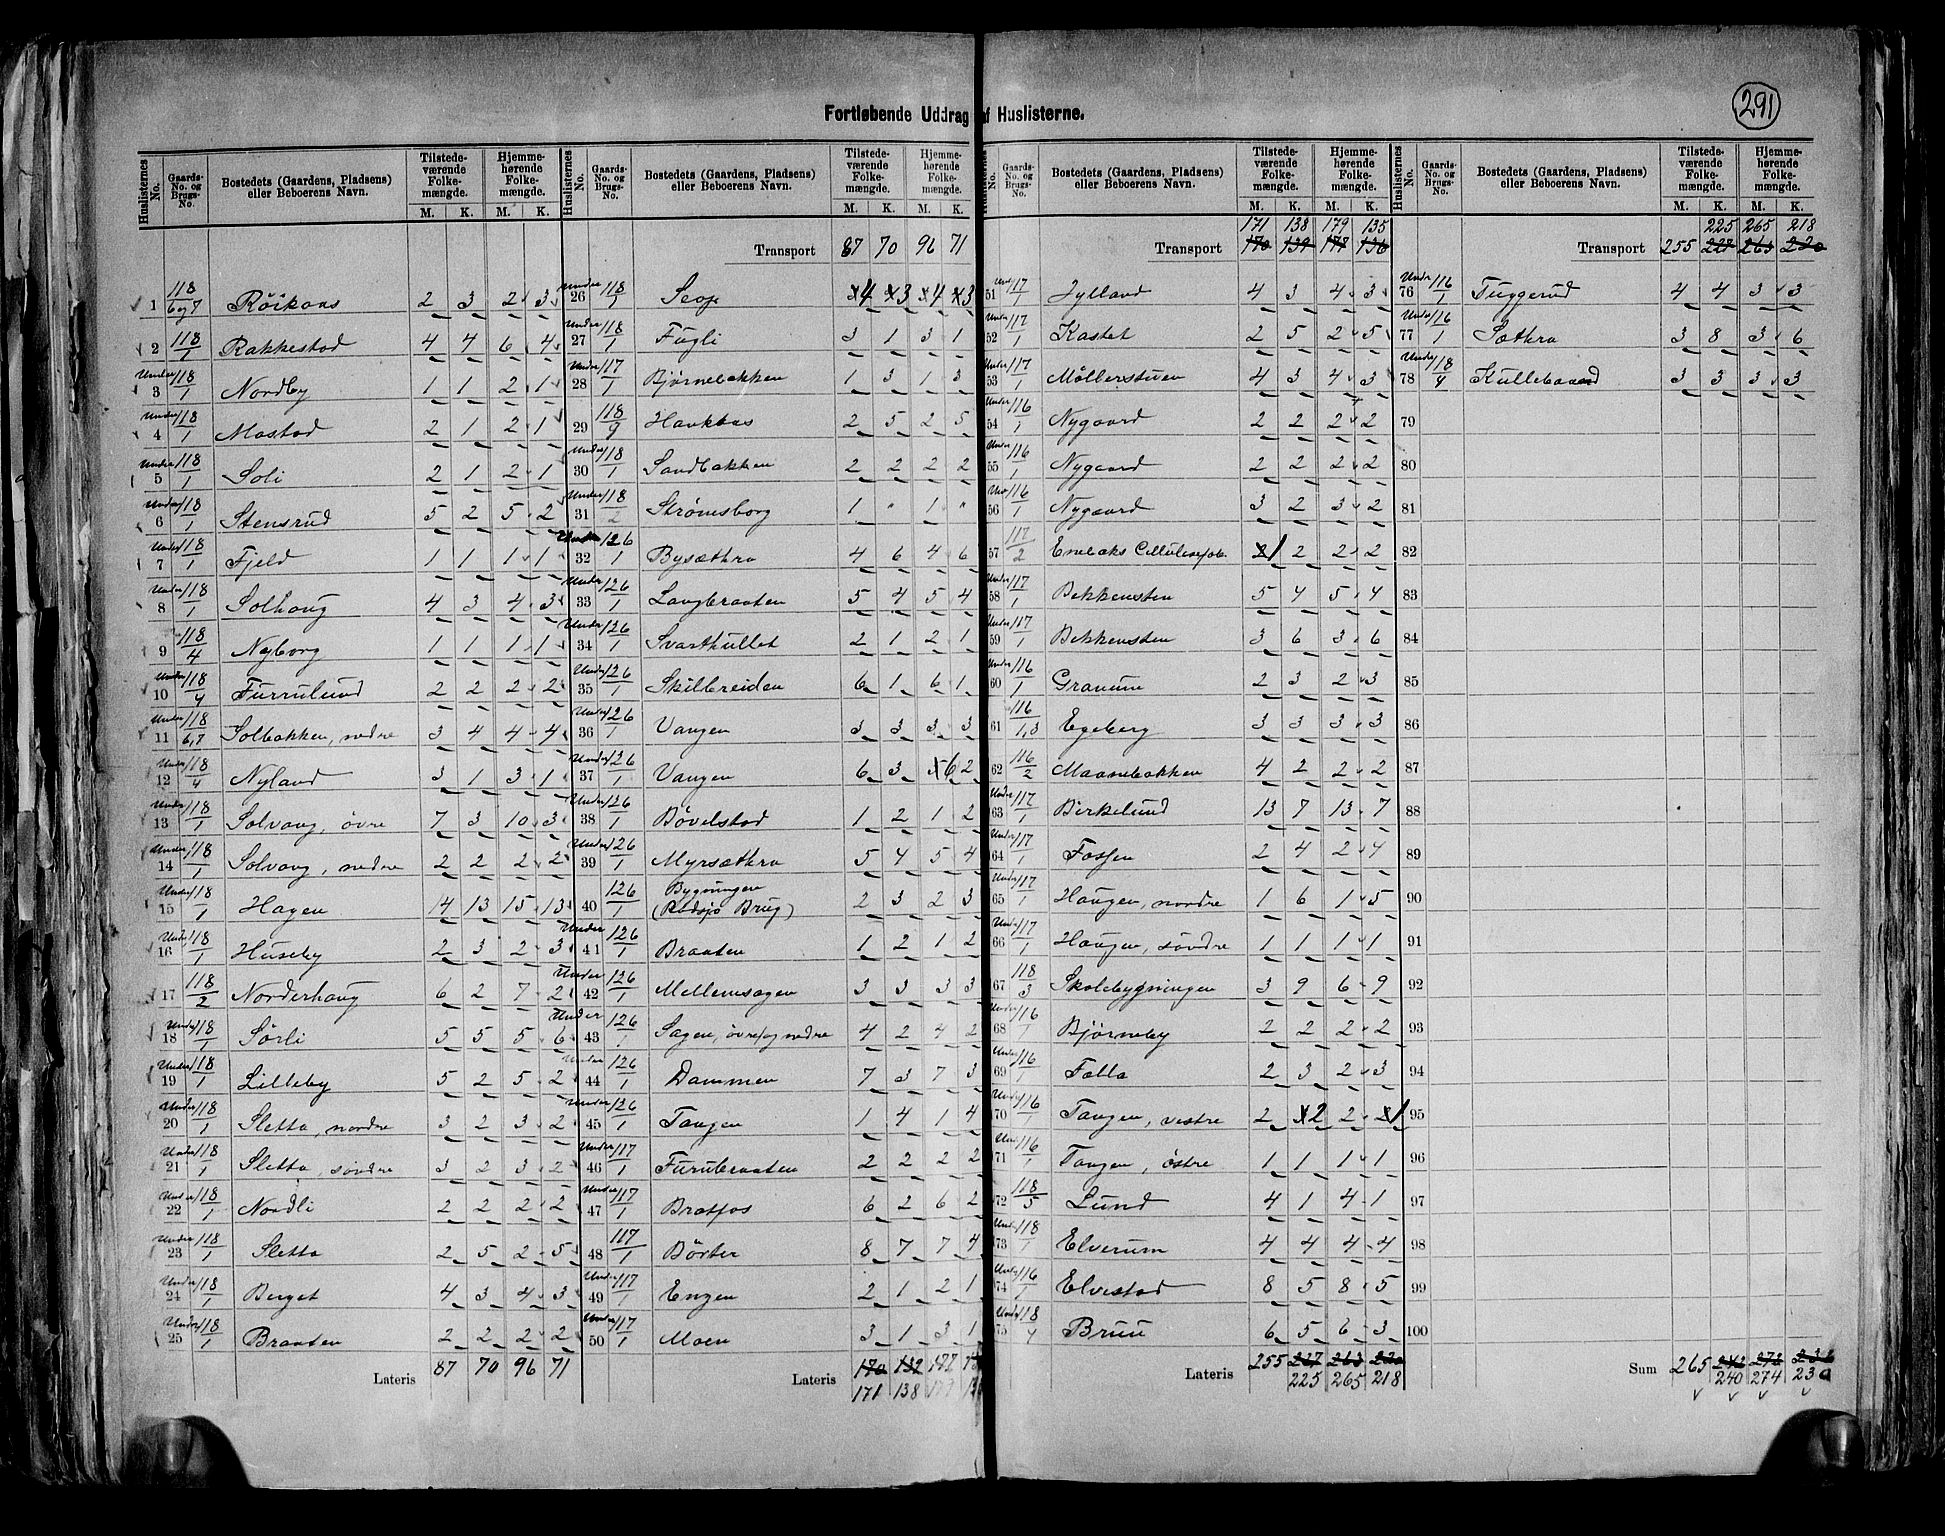 291
Fortløbende Uddrag af Huslisterne.
Huslisternes No. Gaards-No. og Brugs-No. Bostedets (Gaardens, Pladsens) eller Beboerens Navn. Tilstedeværende Folkemængde. Hjemmehørende Folkemængde. M. K. M. K.
1 118/6 og 7 Röikaas 2 3 2 3
2 118/1 Rakkestad 4 4 6 4
3 Under 118/1 Nordby 1 1 2 1
4 Under 118/1 Mostad 2 1 2 1
5 Under 118/1 Soli 2 1 2 1
6 Under 118/1 Stensrud 5 2 5 2
7 Under 118/1 Fjeld 1 1 1 1
8 Under 118/1 Solhaug 4 3 4 3
9 118/4 Nyborg 1 1 1 1
10 Under 118/4 Furulund 2 2 2 2
11 Under 118/6,7 Solbakken, nedre 3 4 4 4
12 Under 118/4 Nyland 3 1 3 1
13 Under 118/1 Solvang, övre 7 3 10 3
14 Under 118/1 Solvang, nedre 2 2 2 2
15 Under 118/1 Hagen 14 13 15 13
16 Under 118/1 Huseby 2 3 2 3
17 118/2 Norderhaug 6 2 7 2
18 Under 118/1 Sørli 5 5 5 6
19 Under 118/1 Lilleby 5 2 5 2
20 Under 118/1 Sletta, nordre 3 2 3 2
21 Under 118/1 Sletta, søndre 3 2 3 2
22 Under 118/1 Nordli 2 2 2 2
23 Under 118/1 Sletta 2 5 2 5
24 Under 118/1 Berget 4 3 4 3
25 Under 118/1 Braaten 2 2 2 2
Lateris 87 70 96 71
Huslisternes No. Gaards-No. og Brugs-No. Bostedets (Gaardens, Pladsens) eller Beboerens Navn. Tilstedeværende Folkemængde. Hjemmehørende Folkemængde. M. K. M. K.
Transport 87 70 96 71
26 Under 118/1 4 3 4 3
27 Under 118/1 Fugli 3 1 3 1
28 Under 117/1 Bjørnebakken 1 3 1 3
29 118/9 Haukaas 2 5 2 5
30 Under 118/1 Sandbakken 2 2 2 2
31 Under 118/2 Strømsborg 1 " 1 "
32 Under 126/1 Bysæthra 4 6 4 6
33 Under 126/1 Langbraaten 5 4 5 4
34 Under 126/1 Svarthullet 2 1 2 1
35 Under 126/1 Skillebreiden 6 1 6 1
36 Under 126/1 Vangen 3 3 3 3
37 Under 126/1 Vangen 6 3 6 2
38 Under 126/1 Bøvelstad 1 2 1 2
39 Under 126/1 Myrsæthra 5 4 5 4
40 126/1 Bygningen (Rødsjø Brug) 2 3 2 3
41 Under 126/1 Braaten 1 2 1 2
42 Under 126/1 Mellemsagen 3 3 3 3
43 Under 126/1 Sagen, øvre og nedre 4 2 4 2
44 Under 126/1 Dammen 7 3 7 3
45 Under 126/1 Tangen 1 4 1 4
46 Under 117/1 Furubraaten 2 2 2 2
47 Under 117/1 Bratfos 6 2 6 2
48 117/1 Börter 8 7 7 4
49 Under 117/1 Engen 2 1 2 1
50 Under 117/1 Moen 3 1 3 1
Lateris 170 132 177
171 138 179
No. Gaards-No. og Brugs-No. Bostedets (Gaardens, Pladsens) eller Beboerens Navn. Tilstedeværende Folkemængde. Hjemmehørende Folkemængde. M. K. M. K.
171 138 179 135
Transport 170 139 177 136
51 117/1 Jylland 4 3 4 3
52 Under 117/1 Kastet 2 5 2 5
53 Under 117/1 Möllerstuen 4 3 4 3
54 Under 116/1 Nygaard 2 2 2 2
55 Under 116/1 Nygaard 2 2 2 2
56 116/1 Nygaard 3 2 3 2
57 117/2 1 2 2 2
58 Under 117/1 Bekkensten 5 4 5 4
59 Under 117/1 Bekkensten 3 6 3 6
60 Under 116/1 Granum 2 3 2 3
61 116/1,3 Egeberg 3 3 3 3
62 116/2 Maanebakken 4 2 2 2
63 Under 117/1 Birkelund 13 7 13 7
64 Under 117/1 Fossen 2 4 2 4
65 Under 117/1 Haugen, nordre 1 6 1 5
66 Under 117/1 Haugen, søndre 1 1 1 1
67 118/3 Skolebygningen 3 9 6 9
68 Under 116/1 Bjørneby 2 2 2 2
69 Under 116/1 Falla 2 3 2 3
70 Under 116/1 Tangen, vestre 2 2 2 1
71 Under 116/1 Tangen, östre 1 1 1 1
72 118/5 Lund 4 1 4 1
73 Under 118/1 Elverum 4 4 4 4
74 Under 116/1 Elvestad 8 5 8 5
75 Under 118/4 Bruu 6 5 6 3
Lateris 255 227 263 220
225 265 218
Huslisternes No. Gaards-No. og Brugs-No. Bostedets (Gaardens, Pladsens) eller Beboerens Navn. Tilstedeværende Folkemængde. Hjemmehørende Folkemængde. M. K. M. K.
225 265 218
Transport 255 227 263 220
76 Under 116/1 Tuggerud 4 4 3 3
77 Under 116/1 Sæthra 3 8 3 6
78 Under 118/4 Kullebaand 3 3 3 3
79
80
81
82
83
84
85
86
87
88
89
90
91
92
93
94
95
96
97
98
99
100
Sum 265 242 272 232
240 274 230